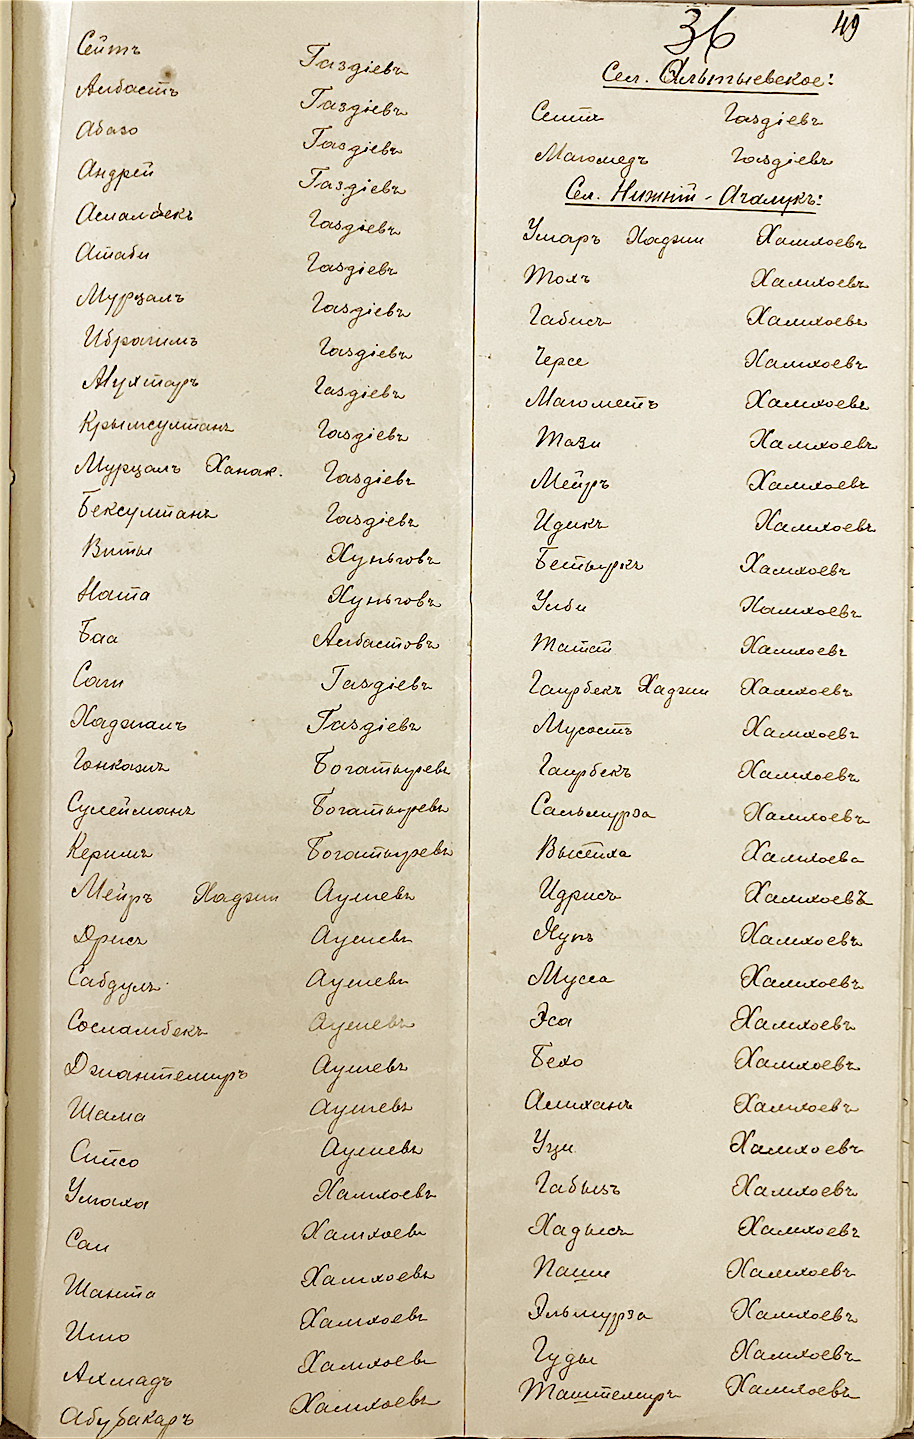 Сеитъ Газдіевъ
Албастъ Газдіевъ
Абазо Газдіевъ
Андрей Газдіевъ
Асламбекъ Газдіевъ
Атаби Газдіевъ
Мурзалъ Газдіевъ
Ибрагимъ Газдіевъ
Мухтаръ Газдіевъ
Крымсултанъ Газдіевъ
Мурцалъ Ханак. Газдіевъ
Бексултанъ Газдіевъ
Виты Хуньговъ
Ната Хуньговъ
Баа Албастовъ
Соти Газдіевъ
Хаджалъ Газдіевъ
Гонказъ Богатыревъ
Сулейманъ Богатыревъ
Керимъ Богатыревъ
Мейръ Хаджи Аушевъ
Дрисъ Аушевъ
Сабдулъ Аушевъ
Сосламбекъ Аушевъ
Джантемиръ Аушевъ
Шама Аушевъ
Сипсо Аушевъ
Умаха Хамхоевъ
Саи Хамхоевъ
Шанта Хамхоевъ
Ишо Хамхоевъ
Ахмадъ Хамхоевъ
Абубакаръ Хамхоевъ
36
49
Сел. Альтыевское:
Сеитъ Газдіевъ
Магомедъ Газдіевъ
Сел. Нижній-Ачалукъ:
Умаръ Хаджи Хамхоевъ
Тохъ Хамхоевъ
Габисъ Хамхоевъ
Черсе Хамхоевъ
Магометъ Хамхоевъ
Тази Хамхоевъ
Мейръ Хамхоевъ
Идикъ Хамхоевъ
Бетыркъ Хамхоевъ
Улби Хамхоевъ
Татат Хамхоевъ
Гаирбекъ Хаджи Хамхоевъ
Мусостъ Хамхоевъ
Гаирбекъ Хамхоевъ
Сальмурза Хамхоевъ
Хамхоева
Идрисъ Хамхоевъ
Якупъ Хамхоевъ
Мусса Хамхоевъ
Эса Хамхоевъ
Бехо Хамхоевъ
Алиханъ Хамхоевъ
Уци Хамхоевъ
Габызъ Хамхоевъ
Хадысъ Хамхоевъ
Паши Хамхоевъ
Эльмурза Хамхоевъ
Гуды Хамхоевъ
Таштемиръ Хамхоевъ